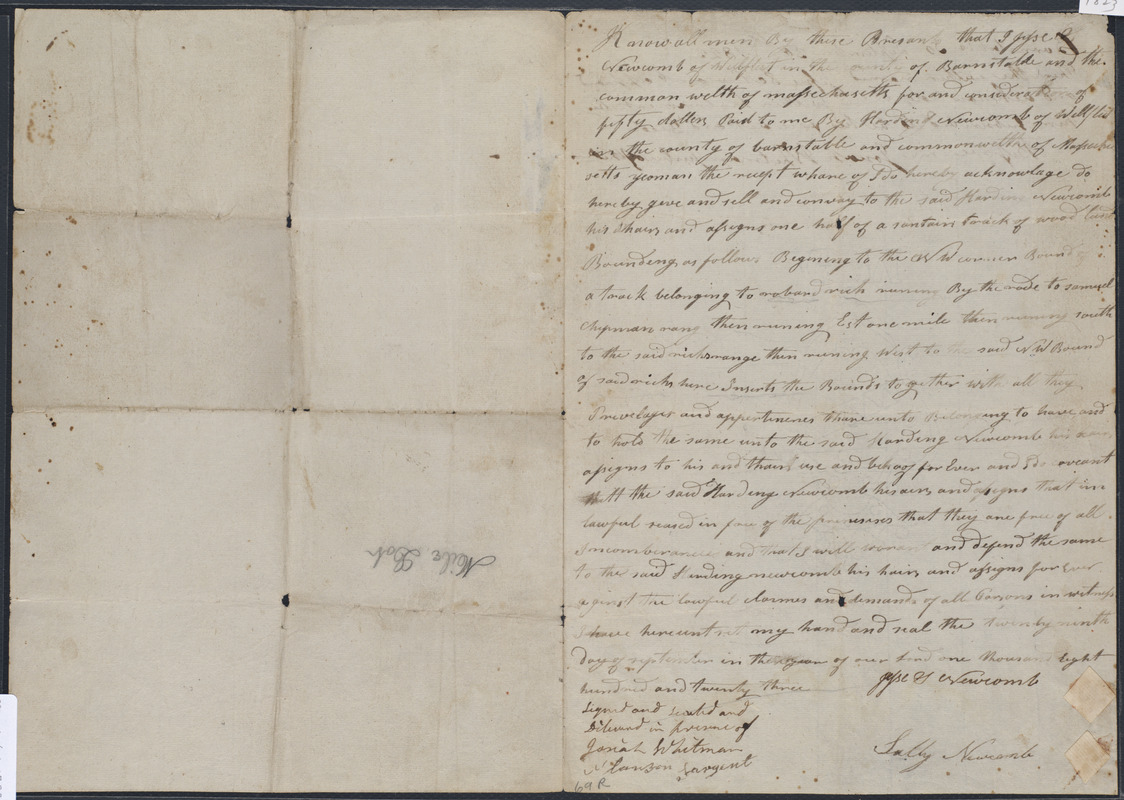 1823
Know all men By these Presants that I Jesse S
Newcomb of Wellfleet in the county of Barnstable and the
common welth of massechusetts for and consideration of
fifty dollers Paid to me By Harding Newcomb of Wellfleet
in the county of barnstable and commonwelth of Massechu
setts yeoman the recept whare of I do hereby acknowlage do
hereby geve and sell and convay to the said Harding Newcomb
his hairs and assigns one half of a santain track of wood land
Bounding as follows Begining to the NW corner Bound of
a track belonging to roband rich runing By the rode to samuel
chipman rang then runing Est one mile then runing south
to the said rich range then runing West to the said NW Bound
of said richs here Inserts the Bounds together with all they
Prevelages and appertinences thareunto Belonging to have and
to hold the same unto the said Harding Newcomb his airs
assigns to his and thair use and behoof for Ever and I do coveant
the said Harding Newcomb his airs and assigns that im
lawful seased in free of the premises that they are free of all
Incomberances and that I will warant and defend the same
to the said Harding newcomb his hairs and assigns for Ever
against the lawful clarmes and demands of all Parsons in witness
I have hereunt set my hand and seal the twenty ninth
day of september in the year of our Lord one thousand Eight
hundred and twenty three
Jesse S Newcomb
signed and sealed and
Delivard in presence of
Josiah Whitman
Sargent
Sally Newcomb
69 R